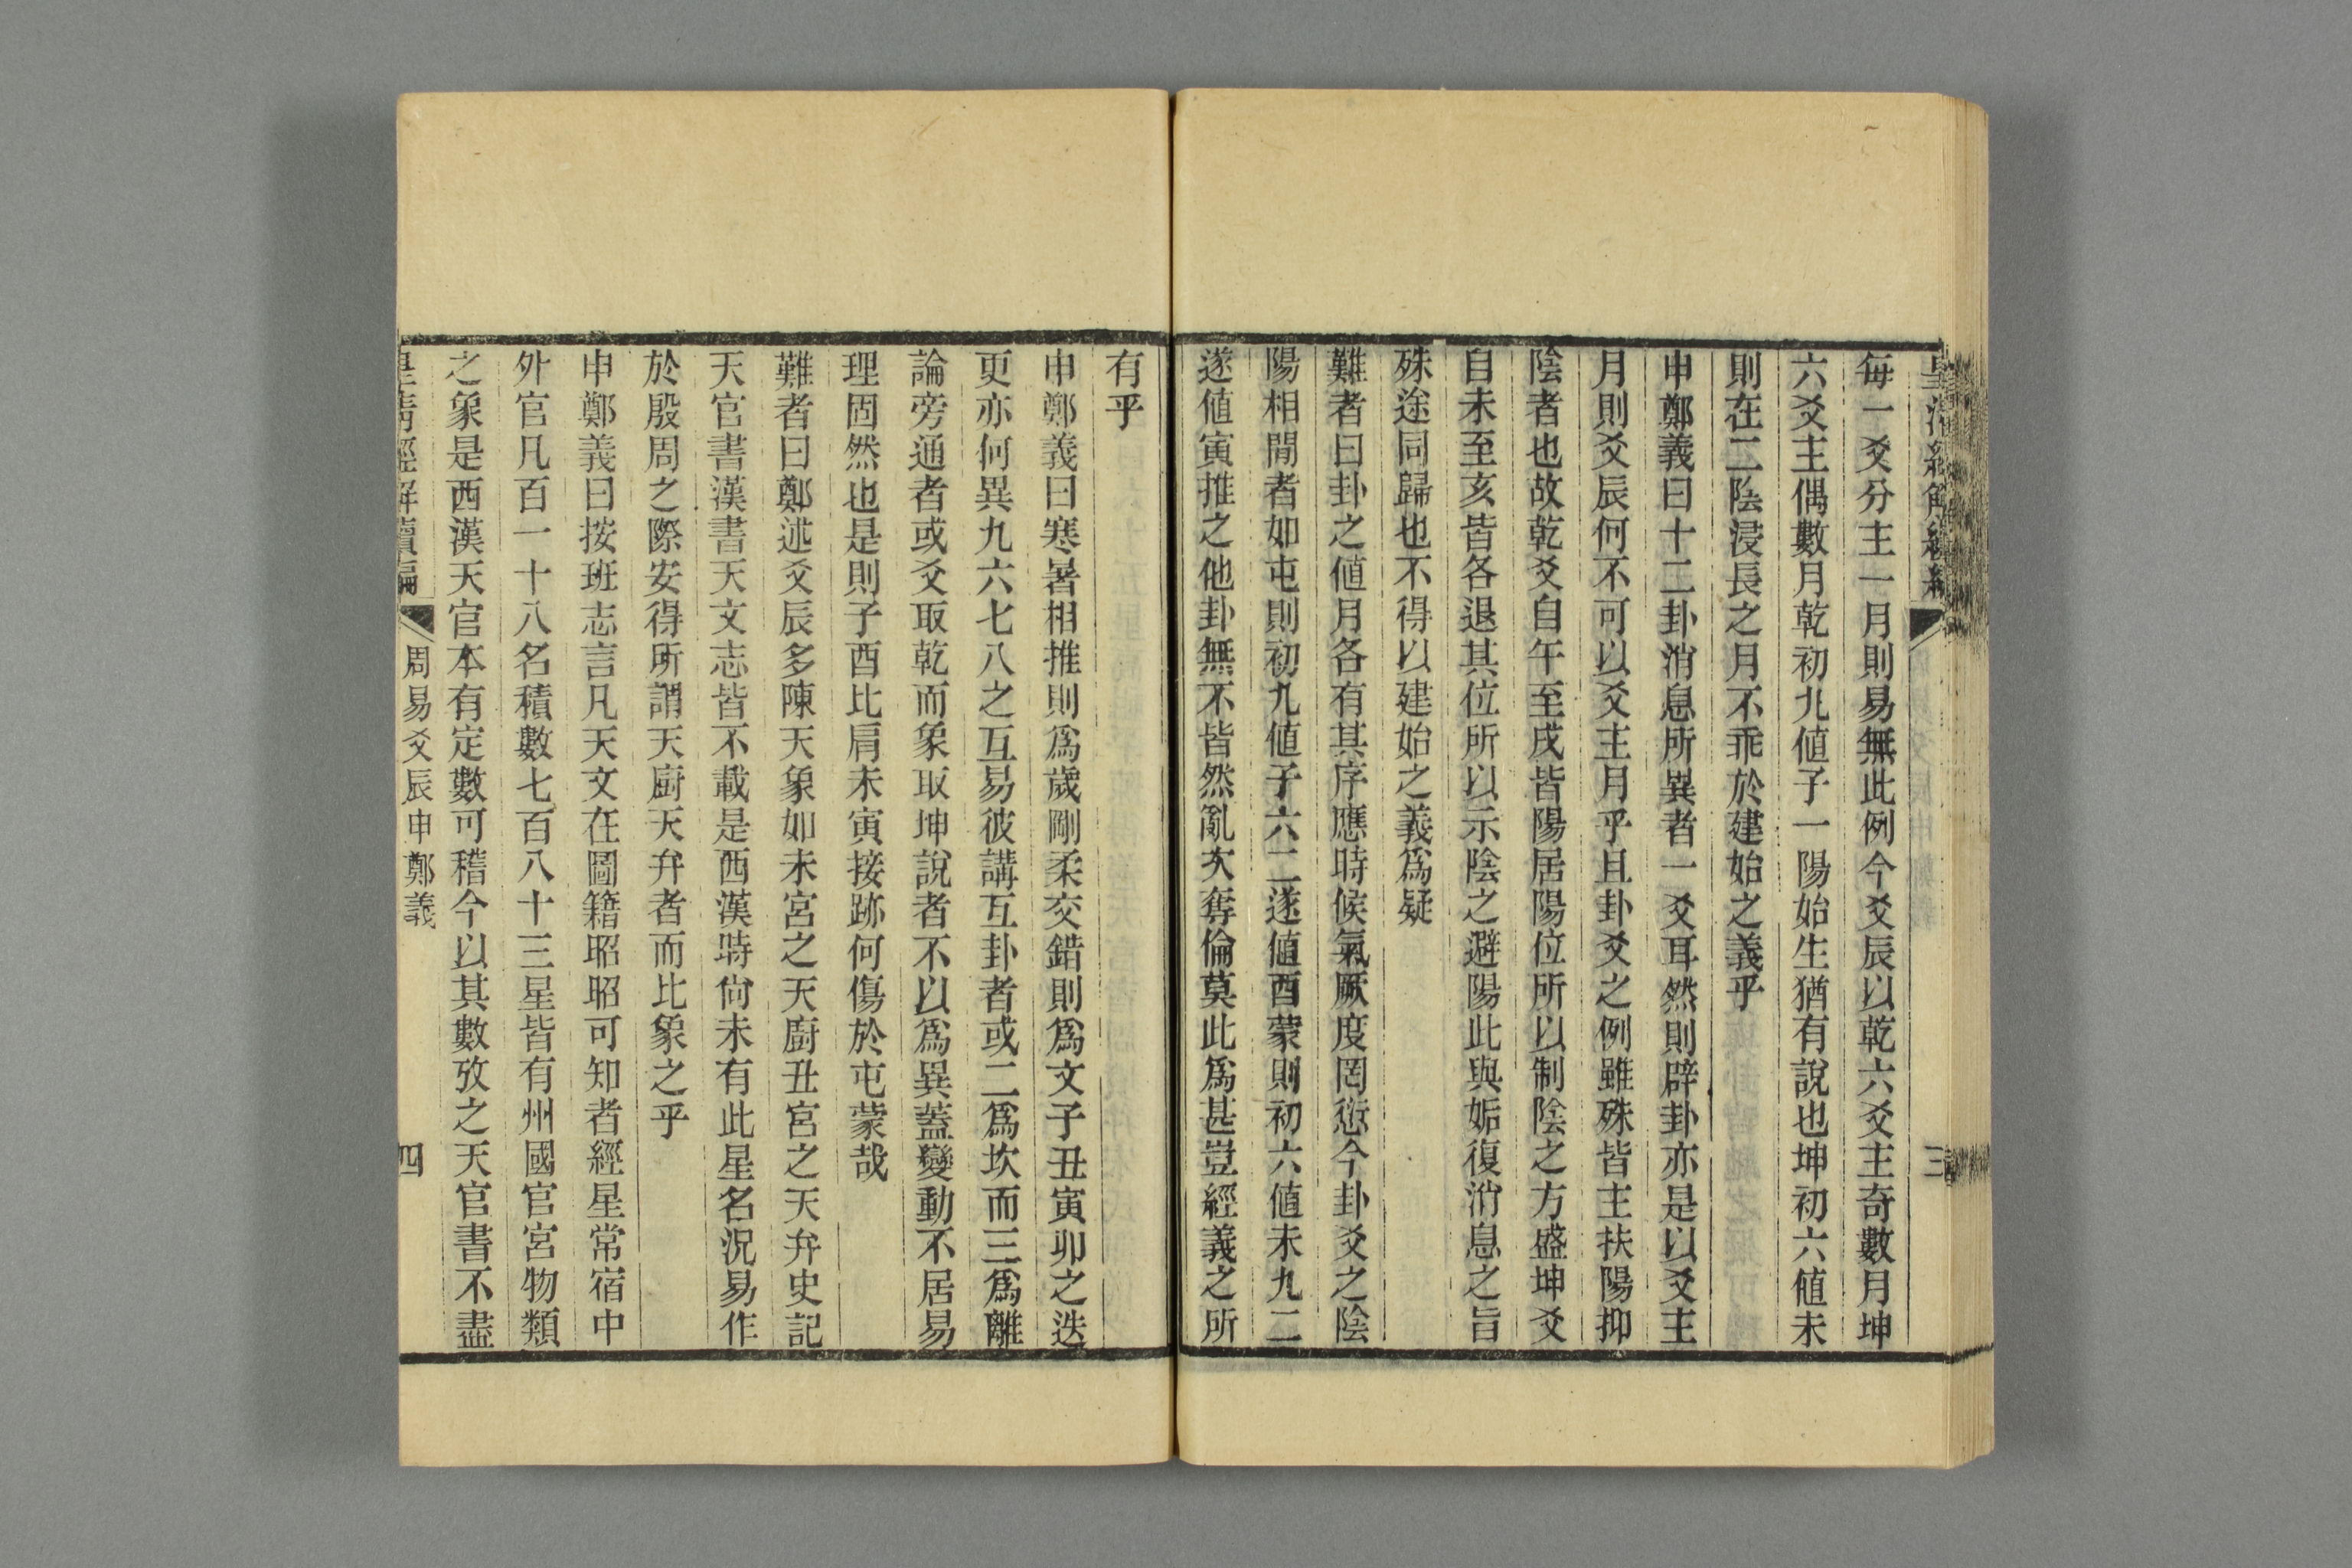 皇清經解續編
三
每一爻分主一月則易無此例今爻辰以乾六爻主奇數月坤
六爻主偶數月乾初九値子一陽始生猶有說也坤初六値未
則在二陰浸長之月不乖於建始之義乎
申鄭義曰十二卦消息所異者一爻耳然則辟卦亦是以爻主
月則爻辰何不可以爻主月乎且卦爻之例雖殊皆主扶陽抑
陰者也故乾爻自午至戌皆陽居陽位所以制陰之方盛坤爻
自未至亥皆各退其位所以示陰之避陽此與姤復消息之旨
殊途同歸也不得以建始之義爲疑
難者曰卦之値月各有其序應時候氣厥度罔愆今卦爻之陰
陽相閒者如屯則初九値子六二遂値酉蒙則初六値未九二
遂値寅推之他卦無不皆然亂次奪倫莫此爲甚豈經義之所
有乎
申鄭義曰寒暑相推則爲歲剛柔交錯則爲文子丑寅卯之迭
更亦何異九六七八之互易彼講互卦者或二爲坎而三爲離
論旁通者或爻取乾而象取坤說者不以爲異蓋變動不居易
理固然也是則子酉比肩未寅接跡何傷於屯蒙哉
難者曰鄭述爻辰多陳天象如未宮之天廚丑宮之天弁史記
天官書漢書天文志皆不載是西漢時尙未有此星名況易作
於殷周之際安得所謂天廚天弁者而比象之乎
申鄭義曰按班志言凡天文在圖籍昭昭可知者經星常宿中
外官凡百一十八名積數七百八十三星皆有州國官宮物類
之象是西漢天官本有定數可稽今以其數攷之天官書不盡
皇淸經解續編
周易爻辰申鄭義
四